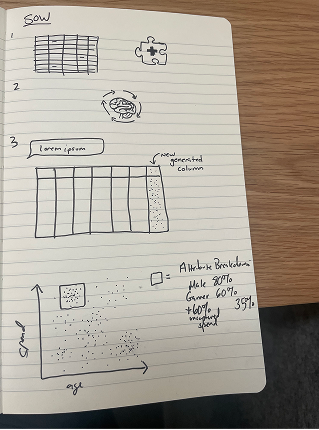 SOW
1
2
3
Lorem ipsum
new
generated
column
spend
age
= Attribute Breakdown
Male 80%
Gamer 60%
+60% 35%
spend